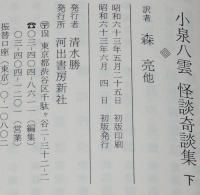 小泉八雲 怪談奇談集 下
訳者 森 亮他
昭和六十三年五月二十五日 初版印刷
昭和六十三年六月 四 日 初版発行
発行者 清水勝
発行所 河出書房新社
〒151 東京都渋谷区千駄ヶ谷二-三十二-二
☎〇三-四〇四-八六一一(編集)
〇三-四〇四-一二〇一(営業)
振替口座(東京)〇-一〇八〇二